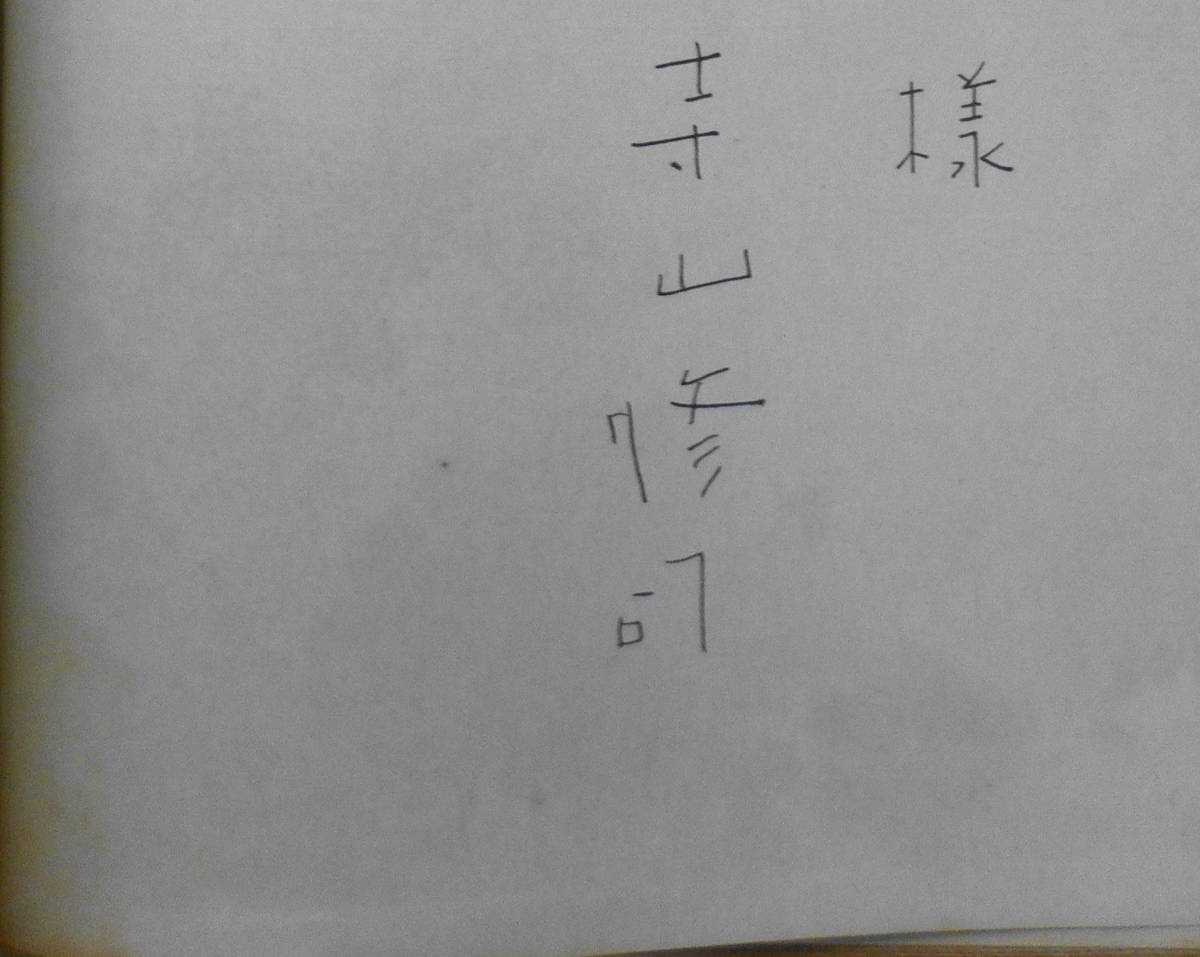 様
寺山修司